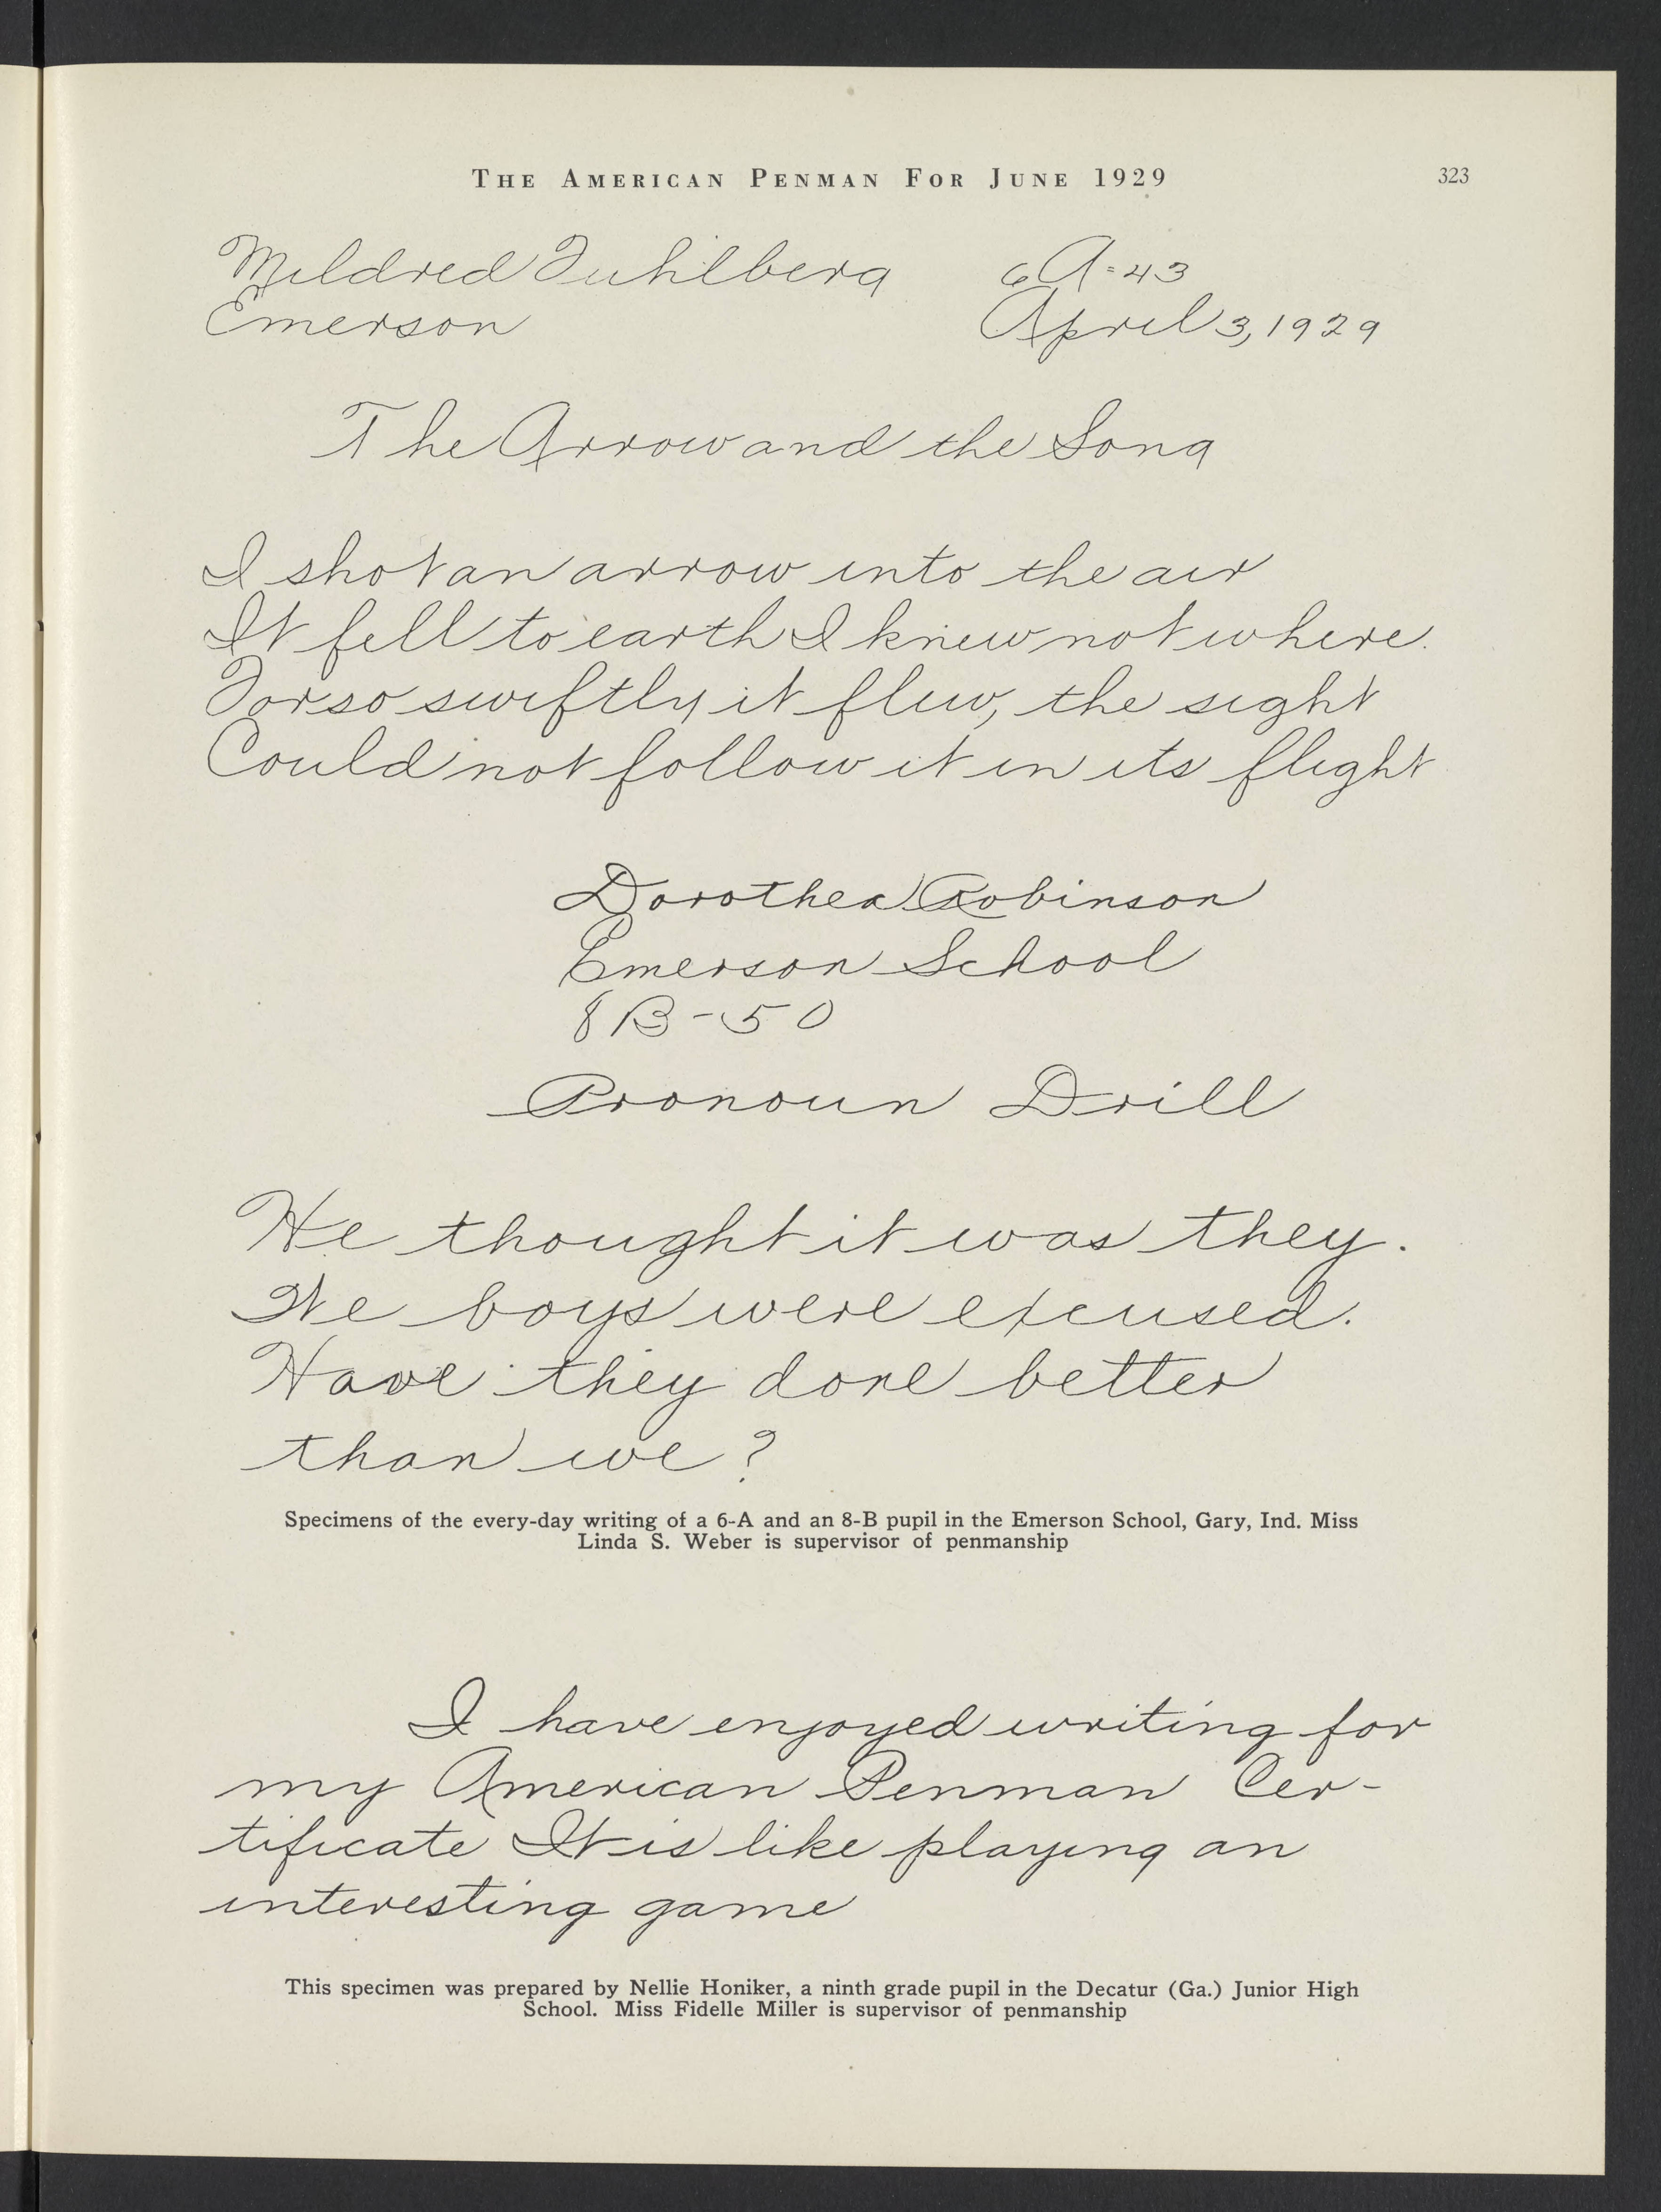 THE AMERICAN PENMAN FOR JUNE 1929
323
Mildred Fuhlberg 6A=43
Emerson April 3, 1929
The Arrow and the Song
I shot an arrow into the air
It fell to earth I knew not where.
For so swiftly it flew, the sight
Could not follow it in its flight
Dorothea Robinson
Emerson School
8B-50
Pronoun Drill
He thought it was they.
We boys were excused.
Have they done better
than we?
Specimens of the every-day writing of a 6-A and an 8-B pupil in the Emerson School, Gary, Ind. Miss
Linda S. Weber is supervisor of penmanship
I have enjoyed writing for
my American Penman Cer-
tificate It is like playing an
interesting game
This specimen was prepared by Nellie Honiker, a ninth grade pupil in the Decatur (Ga.) Junior High
School. Miss Fidelle Miller is supervisor of penmanship